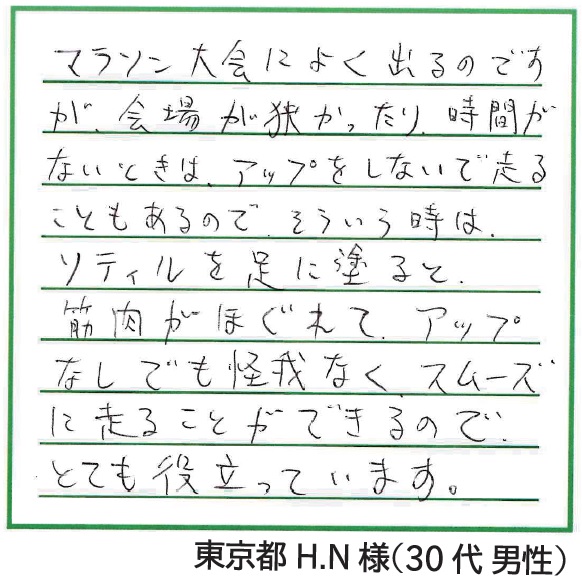 マラソン大会によく出るのです
が、会場が狭かったり、時間が
ないときは、アップをしないで走る
こともあるので、そういう時は、
ソティルを足に塗ると、
筋肉がほぐれて、アップ
なしでも怪我なく、スムーズ
に走ることができるので、
とても役立っています。
東京都 H.N 様(30代 男性)